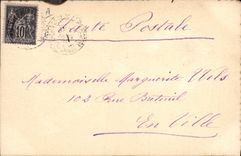 10
Carte Postale
Mademoiselle Marguerite
102 Rue Breteuil
En Ville